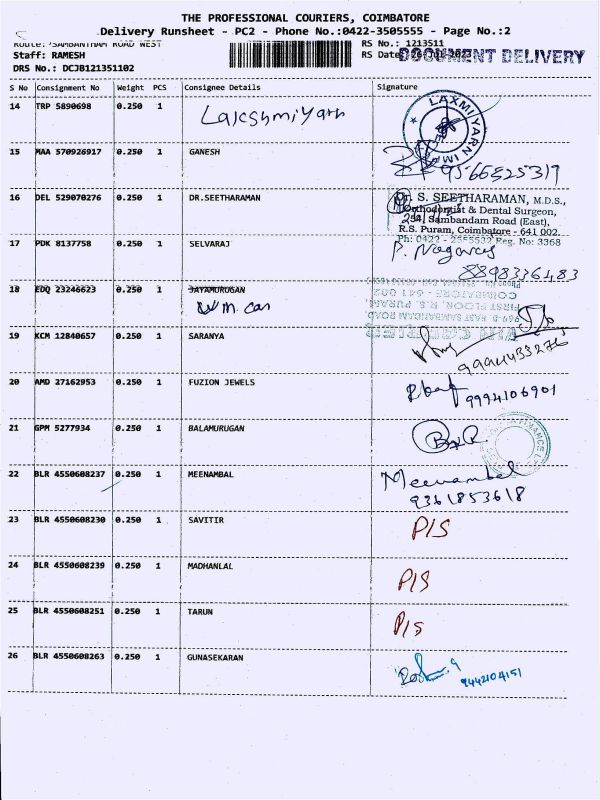 THE PROFESSIONAL COURIERS, COIMBATORE
Delivery Runsheet - PC2 - Phone No.:0422-3505555 - Page No.:2
Route: SAMBANTHAM ROAD WEST
RS No.: 1213511
Staff: RAMESH
RS Date: 26 Jul 2023
DOCUMENT DELIVERY
DRS No.: DCJB121351102
S No Consignment No Weight PCS Consignee Details Signature
14 TRP 5890698 0.250 1 Lakshmi Yarn
LAXMI YARN
15 MAA 570926917 0.250 1 GANESH
9566525317
16 DEL 529070276 0.250 1 DR.SEETHARAMAN
Dr. S. SEETHARAMAN, M.D.S.,
Orthodontist & Dental Surgeon,
254, Sambandam Road (East),
R.S. Puram, Coimbatore - 641 002.
Ph: 0422 - 2555532 Reg. No: 3368
17 PDK 8137758 0.250 1 SELVARAJ
P. Nagaraj
8898336483
18 EDQ 23246623 0.250 1 JAYAMURUGAN
COIMBATORE - 641 002
FIRST FLOOR, R.S. PURAM,
EAST SAMBANDAM ROAD,
19 KCM 12840657 0.250 1 SARANYA
9994433276
20 AMD 27162953 0.250 1 FUZION JEWELS
9994106901
21 GPM 5277934 0.250 1 BALAMURUGAN
22 BLR 4550608237 0.250 1 MEENAMBAL
Meenambal
9361853618
23 BLR 4550608230 0.250 1 SAVITIR P/S
24 BLR 4550608239 0.250 1 MADHANLAL P/S
25 BLR 4550608251 0.250 1 TARUN P/S
26 BLR 4550608263 0.250 1 GUNASEKARAN
9442104151